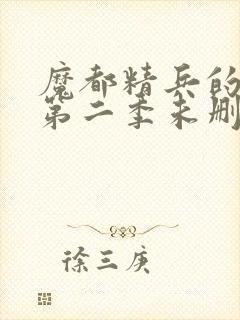 魔都精兵的
第二季未删
徐三庚